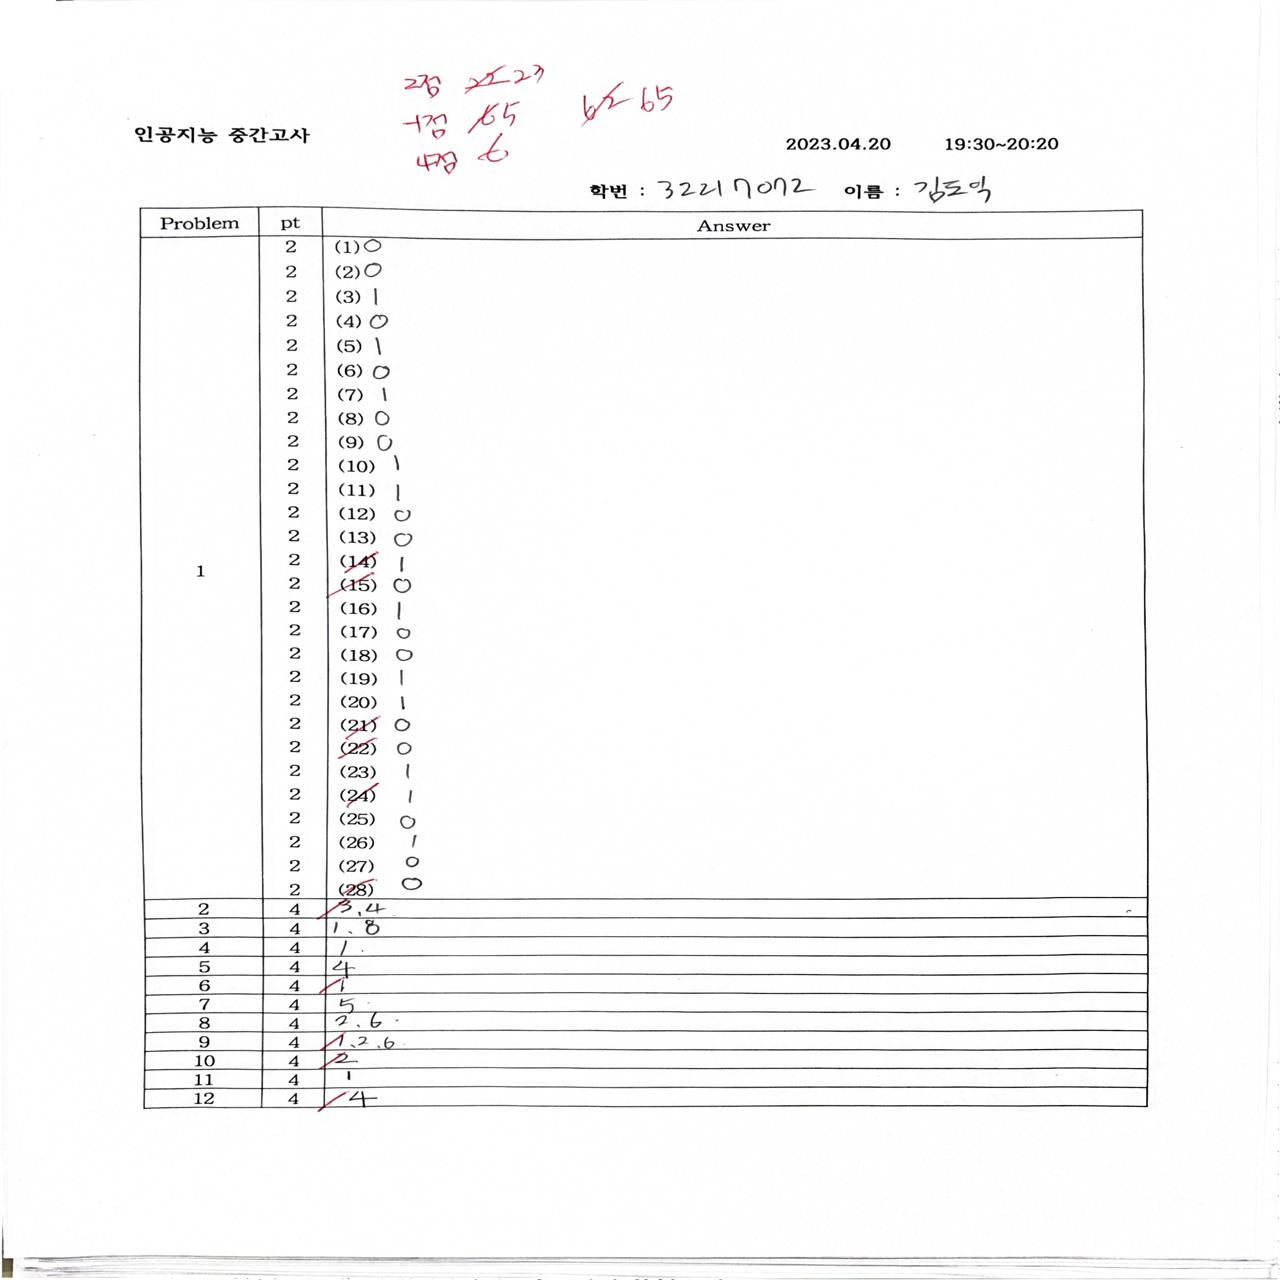 2점 22 23
-1점 65 62 65
4점 6
인공지능 중간고사
2023.04.20 19:30~20:20
학번 : 32217072 이름 : 김도익
Problem pt Answer
1
2 (1) 0
2 (2) 0
2 (3) 1
2 (4) 0
2 (5) 1
2 (6) 0
2 (7) 1
2 (8) 0
2 (9) 0
2 (10) 1
2 (11) 1
2 (12) 0
2 (13) 0
2 (14) 1
2 (15) 0
2 (16) 1
2 (17) 0
2 (18) 0
2 (19) 1
2 (20) 1
2 (21) 0
2 (22) 0
2 (23) 1
2 (24) 1
2 (25) 0
2 (26) 1
2 (27) 0
2 (28) 0
2 4 3, 4
3 4 1, 8
4 4 1
5 4 4
6 4 1
7 4 5
8 4 2, 6
9 4 1, 2, 6
10 4 2
11 4 1
12 4 4